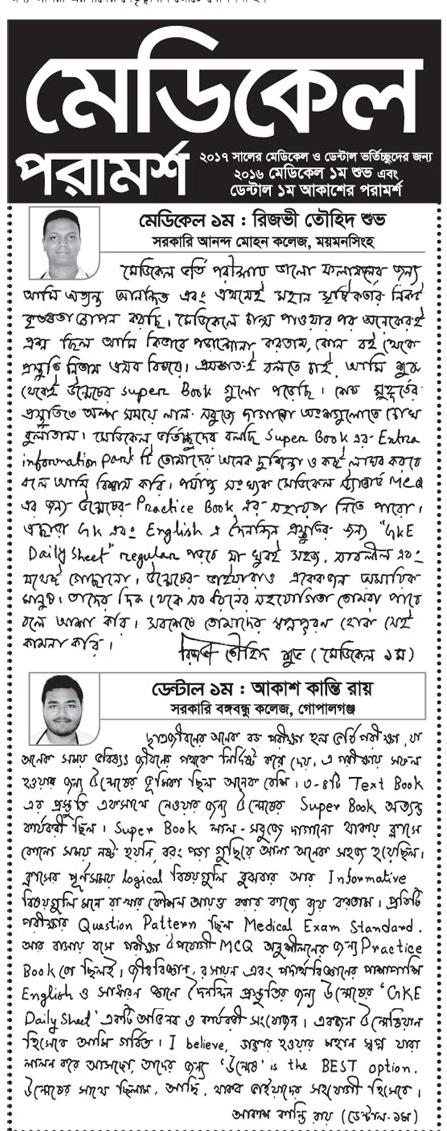 মেডিকেল
পরামর্শ
২০১৭ সালের মেডিকেল ও ডেন্টাল ভর্তিচ্ছুদের জন্য
২০১৬ মেডিকেল ১ম শুভ এবং
ডেন্টাল ১ম আকাশের পরামর্শ
মেডিকেল ১ম : রিজভী তৌহিদ শুভ
সরকারি আনন্দ মোহন কলেজ, ময়মনসিংহ
মেডিকেল ভর্তি পরীক্ষায় ভালো ফলাফলের জন্য
আমি অত্যন্ত আনন্দিত এবং প্রথমেই মহান সৃষ্টিকর্তার নিকট
কৃতজ্ঞতা জ্ঞাপন করছি। মেডিকেলে চান্স পাওয়ার পর অনেকেরই
প্রশ্ন ছিল আমি কিভাবে পড়াশোনা করতাম, কোন বই থেকে
প্রস্তুতি নিতাম এসব বিষয়ে। প্রথমতই বলতে চাই, আমি শুরু
থেকেই উন্মেষের Super Book গুলো পড়েছি। শেষ মুহূর্তের
প্রস্তুতিতে অল্প সময়ে লাল-সবুজে দাগানো অংশগুলোতে চোখ
বুলাতাম। মেডিকেল ভর্তিচ্ছুদের বলছি Super Book এর Extra
information part টি তোমাদের অনেক দুশ্চিন্তা ও কষ্ট লাঘব করবে
বলে আমি বিশ্বাস করি। পর্যাপ্ত সংখ্যক মেডিকেল স্ট্যান্ডার্ড MCQ
এর জন্য উন্মেষের Practice Book এর সহায়তা নিতে পারো।
এছাড়া GK এবং English এ দৈনন্দিন প্রস্তুতির জন্য "GKE
Daily Sheet" regular পড়বে যা খুবই সহজ, সাবলীল এবং
যথেষ্ট গোছানো। উন্মেষের ভাইয়ারাও একেকজন অমায়িক
মানুষ। তাদের দিক থেকে সব ধরনের সহযোগিতা তোমরা পাবে
বলে আশা করি। সবশেষে তোমাদের স্বপ্নপূরণ হোক সেই
কামনা করি।
রিজভী তৌহিদ শুভ (মেডিকেল ১ম)
ডেন্টাল ১ম : আকাশ কান্তি রায়
সরকারি বঙ্গবন্ধু কলেজ, গোপালগঞ্জ
ছাত্রজীবনের অনেক বড় পরীক্ষা হল ভর্তি পরীক্ষা, যা
অনেক সময় ভবিষ্যত জীবনের পথকে নির্দিষ্ট করে দেয়। এ পরীক্ষায় সফল
হওয়ার জন্য উন্মেষের ভূমিকা ছিল অনেক বেশি। ৩-৪টি Text Book
এর প্রস্তুতি একসাথে নেওয়ার জন্য উন্মেষের Super Book অত্যন্ত
কার্যকরী ছিল। Super Book লাল-সবুজে দাগানো থাকায় ক্লাসে
কোনো সময় নষ্ট হয়নি বরং পড়া গুছিয়ে আনা অনেক সহজ হয়েছিল।
ক্লাসের পূর্ণসময় logical বিষয়গুলি বুঝবার আর Informative
বিষয়গুলি মনে রাখার কৌশল আয়ত্ত করার কাজে ব্যয় করতাম। প্রতিটি
পরীক্ষার Question Pattern ছিল Medical Exam Standard.
আর বাসায় বসে পরীক্ষা উপযোগী MCQ অনুশীলনের জন্য Practice
Book তো ছিলই। জীববিজ্ঞান, রসায়ন এবং পদার্থবিজ্ঞানের পাশাপাশি
English ও সাধারণ জ্ঞানে দৈনন্দিন প্রস্তুতির জন্য উন্মেষের 'GKE
Daily Sheet' একটি অভিনব ও কার্যকরী সংযোজন। একজন উন্মেষিয়ান
হিসেবে আমি গর্বিত। I believe, ডাক্তার হওয়ার মহান স্বপ্ন যারা
লালন করে আসছো, তাদের জন্য 'উন্মেষ' is the BEST option.
উন্মেষের সাথে ছিলাম, আছি, থাকব ভাইয়াদের সহযোগী হিসেবে।
আকাশ কান্তি রায় (ডেন্টাল-১ম)